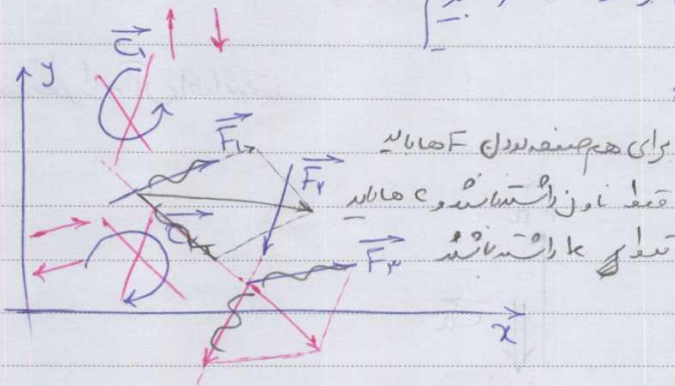 C₁
y
F₁
برای هم صفحه بودن F ها باید
F₂
فقط i و j داشته باشند و C ها باید
C₂
F₃
فقط k داشته باشند
x